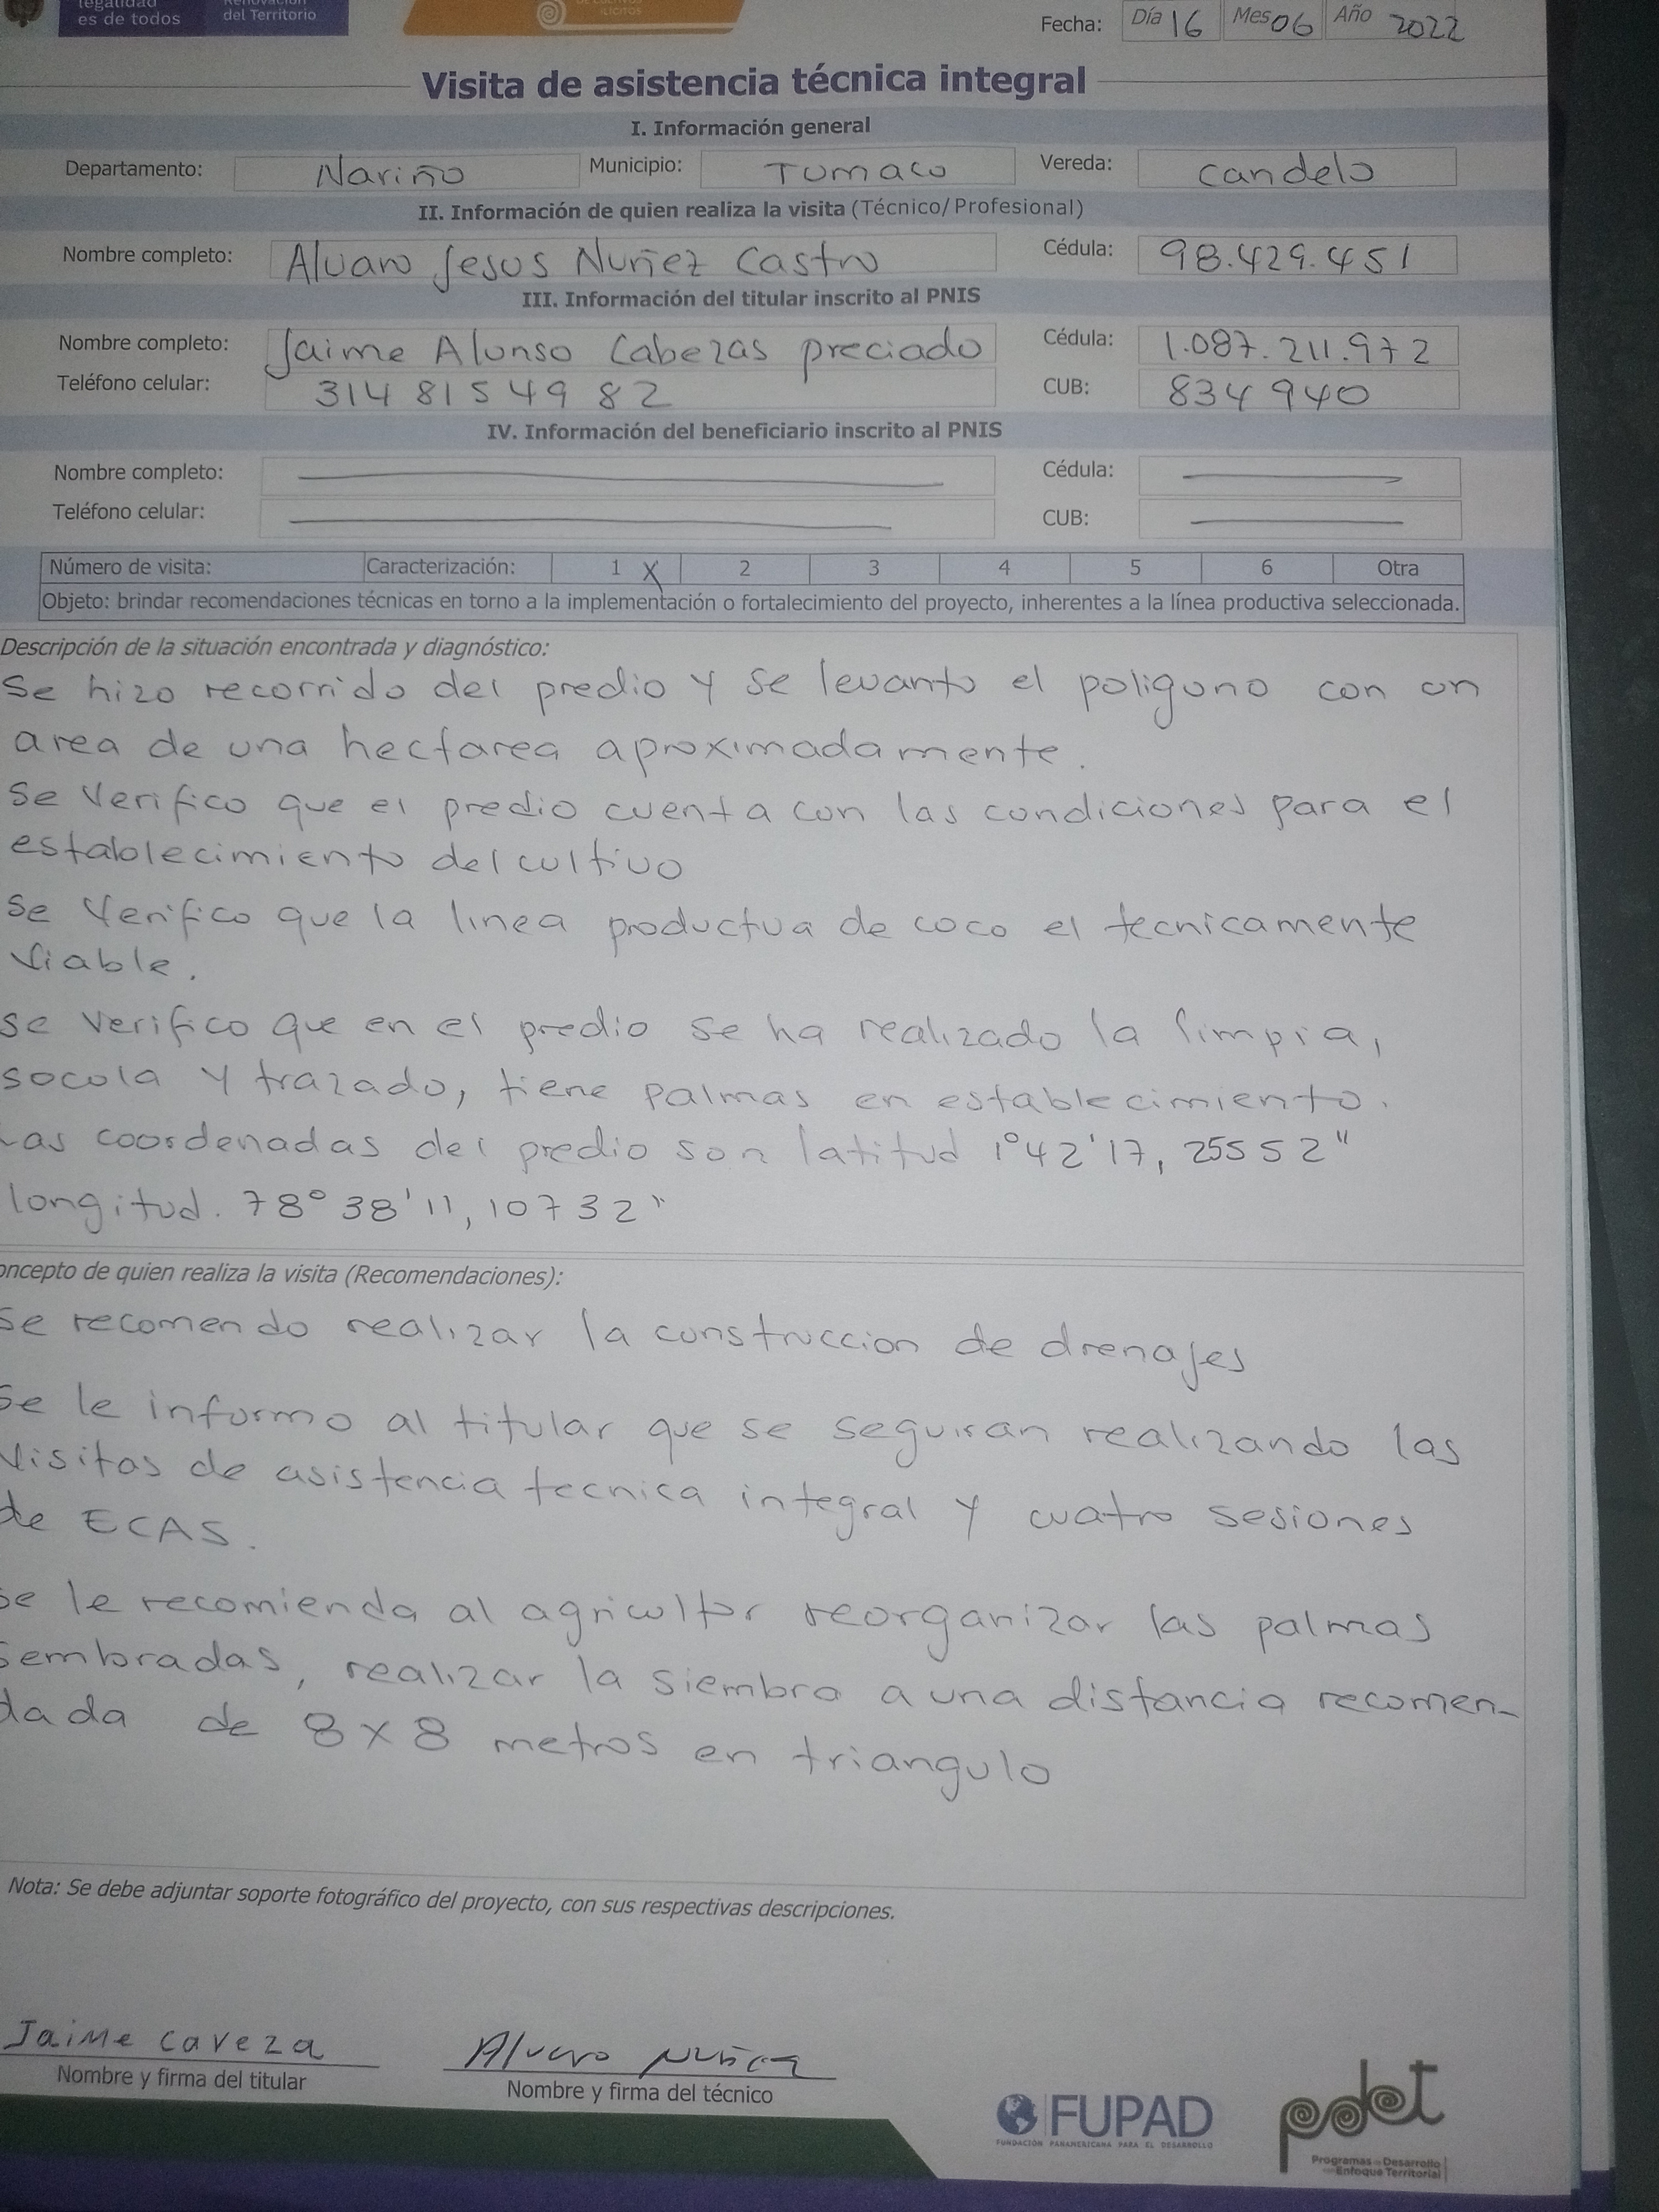 legalidad
es de todos
Renovación
del Territorio
DE CULTIVOS
ILÍCITOS
Fecha: Día 16 Mes 06 Año 2022
Visita de asistencia técnica integral
I. Información general
Departamento: Nariño Municipio: Tumaco Vereda: Candelo
II. Información de quien realiza la visita (Técnico/Profesional)
Nombre completo: Alvaro Jesus Nuñez Castro Cédula: 98.429.451
III. Información del titular inscrito al PNIS
Nombre completo: Jaime Alonso Cabezas preciado Cédula: 1.087.211.972
Teléfono celular: 314 81 5 49 82 CUB: 834940
IV. Información del beneficiario inscrito al PNIS
Nombre completo: Cédula:
Teléfono celular: CUB:
Número de visita: Caracterización: 1 X 2 3 4 5 6 Otra
Objeto: brindar recomendaciones técnicas en torno a la implementación o fortalecimiento del proyecto, inherentes a la línea productiva seleccionada.
Descripción de la situación encontrada y diagnóstico:
Se hizo recorrido del predio y se levanto el poligono con un
area de una hectarea aproximadamente.
Se Verifico que el predio cuenta con las condiciones para el
establecimiento del cultivo
Se Verifico que la linea productua de coco el tecnicamente
viable.
se verifico que en el predio se ha realizado la limpia,
socola y trazado, tiene palmas en establecimiento.
Las coordenadas del predio son latitud 1°42'17, 25552"
longitud. 78°38'11,10732"
oncepto de quien realiza la visita (Recomendaciones):
Se recomendo realizar la construccion de drenajes
Se le informo al titular que se seguiran realizando las
visitas de asistencia tecnica integral y cuatro sesiones
de ECAS.
Se le recomienda al agricultor reorganizar las palmas
sembradas, realizar la siembra a una distancia recomen-
dada de 8x8 metros en triangulo
Nota: Se debe adjuntar soporte fotográfico del proyecto, con sus respectivas descripciones.
Jaime caveza Alvaro Nuñez
Nombre y firma del titular Nombre y firma del técnico
FUPAD
FUNDACIÓN PANAMERICANA PARA EL DESARROLLO
pdet
Programas de Desarrollo
con Enfoque Territorial